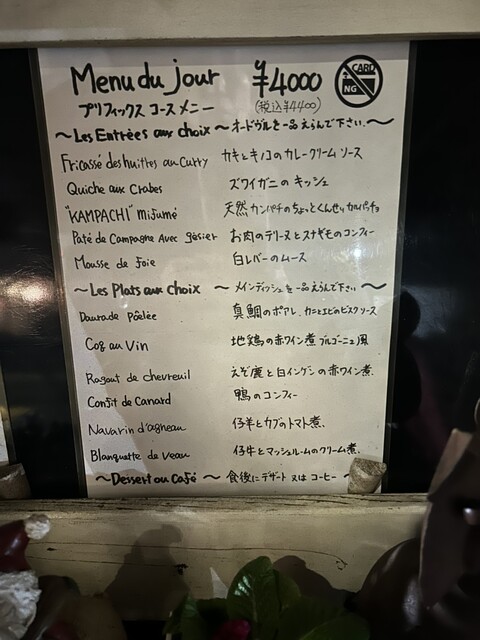 Menu du jour ¥4000 CARD NG
プリフィックス コース メニー (税込¥4400)
〜Les Entrées aux choix 〜オードヴルを一品えらんで下さい。〜
Fricassé des huittes au Curry カキとキノコのカレークリームソース
Quiche aux Crabes ズワイガニの キッシュ
"KAMPACHI" mifumé 天然カンパチのちょっとくんせいカルパッチョ
Paté de Campagne Avec gésier お肉のテリーヌとスナギモのコンフィー
Mousse de foie 白レバーのムース
〜Les Plats aux choix 〜メインディッシュを一品えらんで下さい〜
Daurade Pôelée 真鯛のポアレ、カニとエビのビスクソース
Coq au Vin 地鶏の赤ワイン煮 ブルゴーニュ風
Ragout de chevreuil えぞ鹿と白インゲンの赤ワイン煮、
Confit de Canard 鴨のコンフィー
Navarin d'agneau 仔羊とカブのトマト煮、
Blanquette du veau 仔牛とマッシュルームのクリーム煮、
〜Dessert ou Café 〜食後にデザート又はコーヒー〜